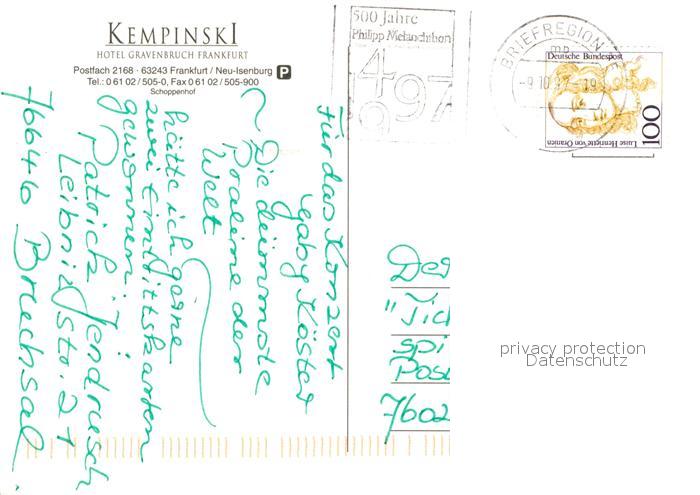 KEMPINSKI
HOTEL GRAVENBRUCH FRANKFURT
Postfach 2168 · 63243 Frankfurt / Neu-Isenburg P
Tel.: 0 61 02 / 505-0, Fax 0 61 02 / 505-900
Schoppenhof
500 Jahre
Philipp Melanchthon
1497
BRIEFREGION
mb
-9.10.97-19
Deutsche Bundespost
100
Luise Henriette von Oranien
Für das Konzert
Gaby Köster
"Die dümmste
Praline der
Welt
hätte ich gerne
zwei Eintrittskarten
gewonnen.
Patrick Jendrusch
Leibnizstr. 21
76646 Bruchsal
"Tic
Spi
Pos
7602
privacy protection
Datenschutz